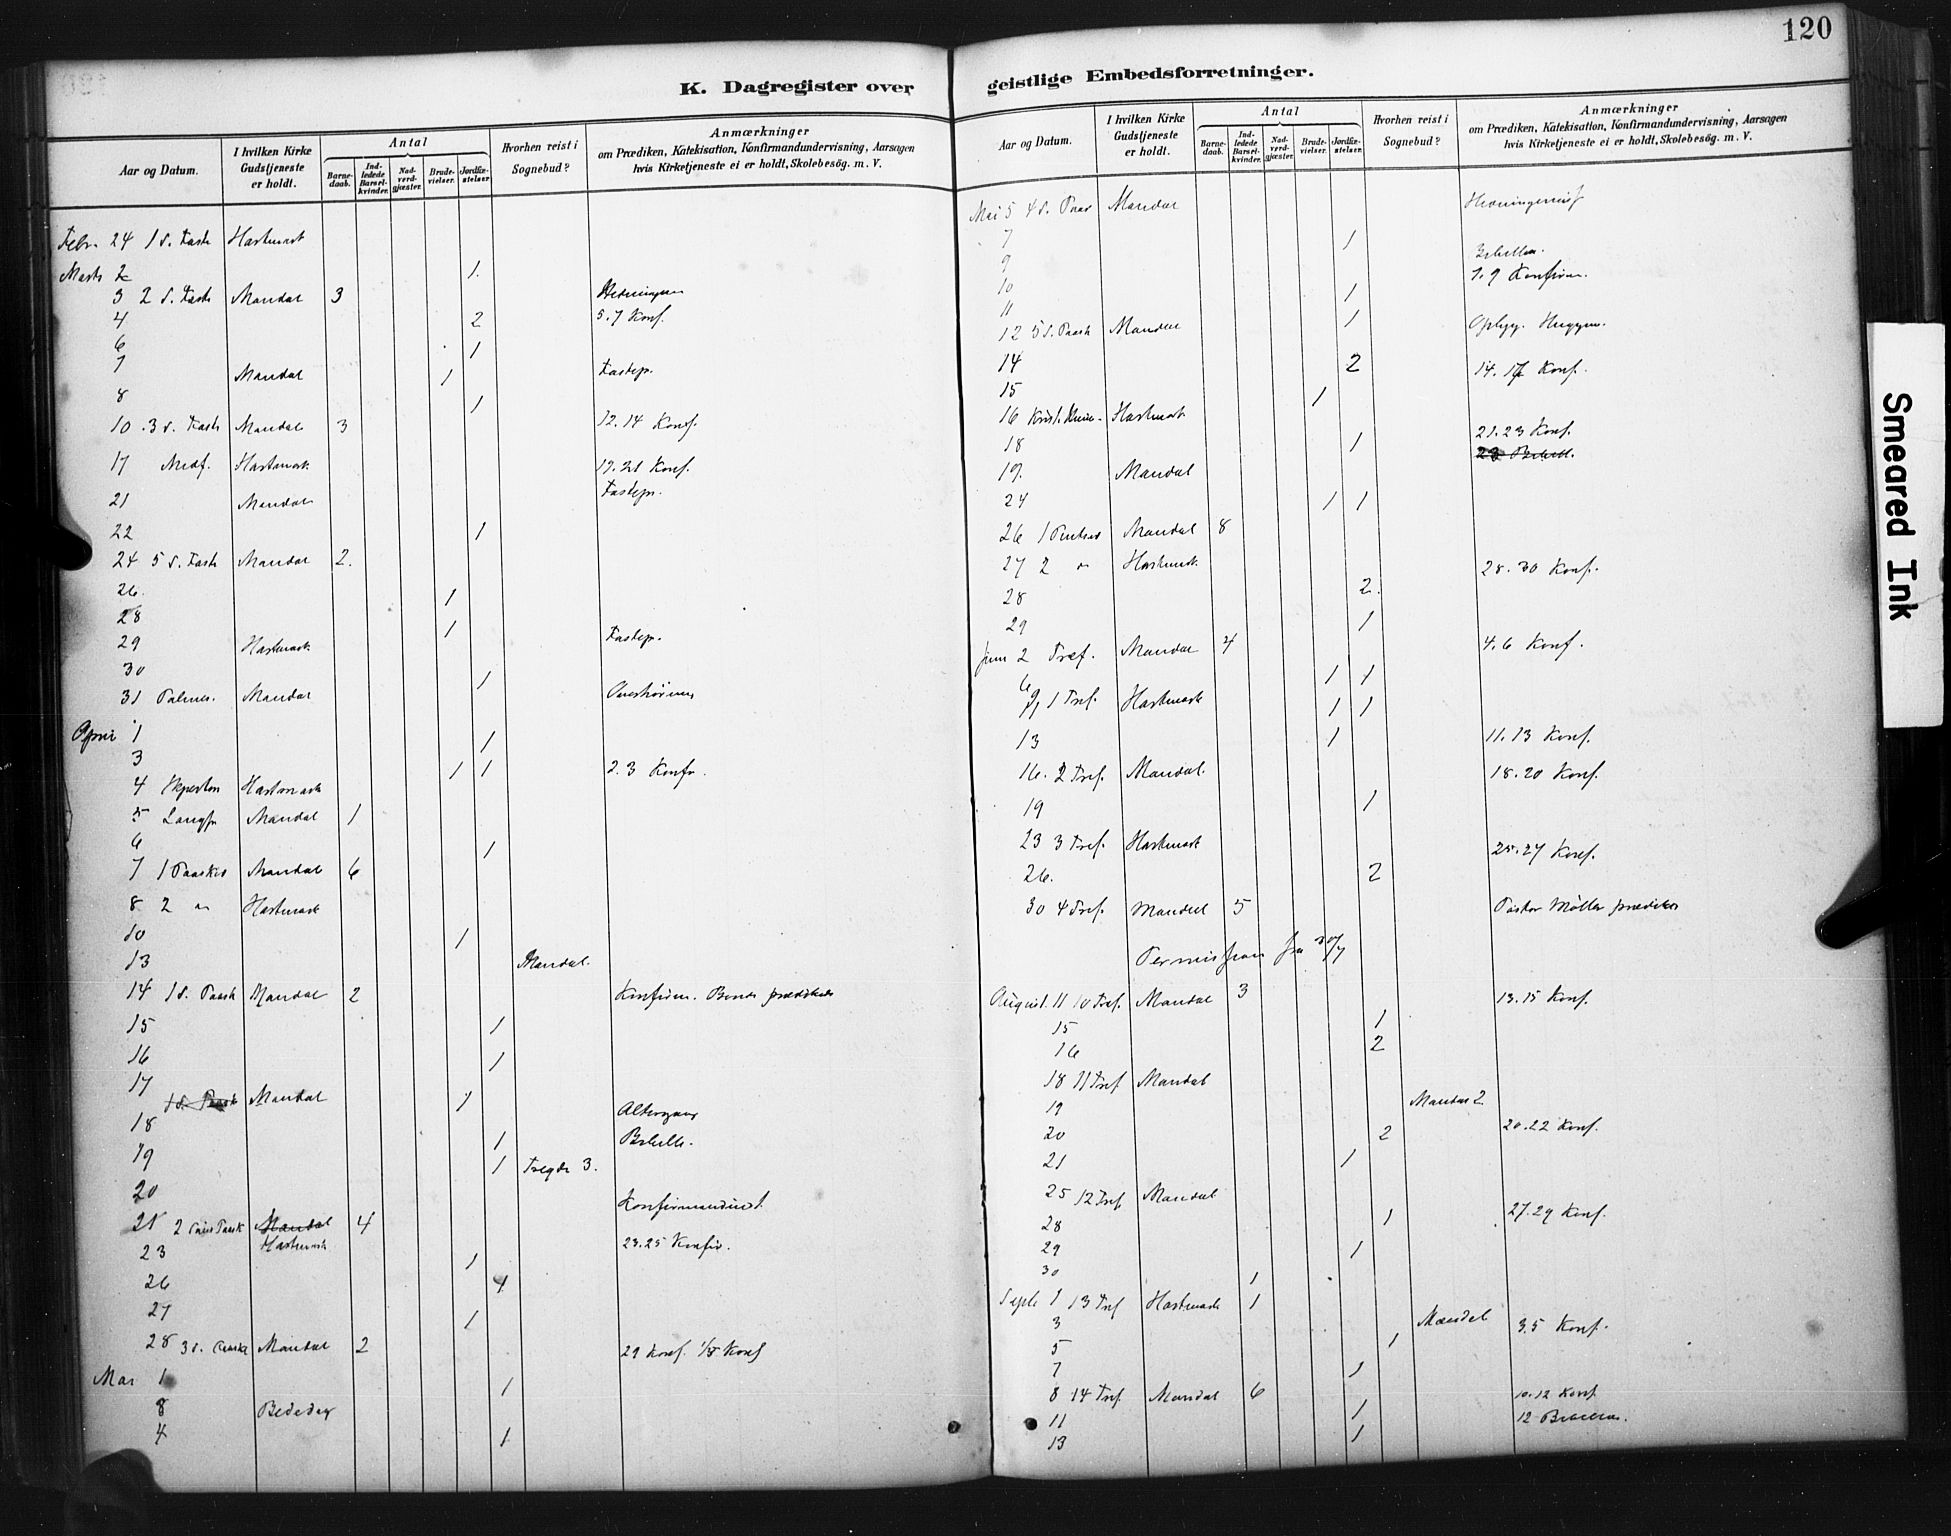 120
K. Dagregister over geistlige Embedsforretninger.
Aar og Datum. I hvilken Kirke Gudstjeneste er holdt. Antal Barnedaab. Indledede Barselkvinder. Nadverdgjæster. Brudevielser. Jordfæstelser. Hvorhen reist i Sognebud? Anmærkninger om Prædiken, Katekisation, Konfirmandundervisning, Aarsagen hvis Kirketjeneste ei er holdt, Skolebesög. m. V.
Febr. 24 1 S. Faste
Marts 2 1.
3 2 S. Faste Mandal 3
4 2 5.7 Konf.
6 1
7 Mandal 1 Fastepr.
8 1
10 3 S. Faste Mandal 3 12.14 Konf.
17 Midf. 19.21 Konf.
21 Mandal Fastepr.
22 1
24 5 S. Faste Mandal 2.
26. 1
28 1
29 Fastepr.
30 1
31 Palmes. Mandal
April 1 1
3 1 1 2.3 Konfr.
4
5 Langfr Mandal 1
6 1
7 1 Paaske Mandal 6
8 2
10 1
13 Mandal.
14 1 S. Paask Mandal 2 Konfirm. prædiken
15 1
16 1
17 1 S. Paask Mandal 1 Altergang
18 1 Bibelle.
19 1 Tregde 3.
20 Konfirmandund.
21 2 Paask Mandal 4
23 1 23.25 Konfir.
26 4
27 1
28 3 S. Paaske Mandal 2 29 Konf. 1/5 Konf
Mai 1 1
8 Bededag
4 1
Aar og Datum. I hvilken Kirke Gudstjeneste er holdt. Antal Barnedaab. Indledede Barselkvinder. Nadverdgjæster. Brudevielser. Jordfæstelser. Hvorhen reist i Sognebud? Anmærkninger om Prædiken, Katekisation, Konfirmandundervisning, Aarsagen hvis Kirketjeneste ei er holdt, Skolebesög. m. V.
Mai 5 4 S. Paas Mandal
7 1
9 7.9 Konfirm.
10 1
11 1
12 5 S. Paask Mandal
14 2 14.17 Konf.
15 1
16
18 1 21.23 Konf.
19. Mandal
24 1 1
26 1 Pintsed Mandal 8
27 2 28.30 Konf.
28 2.
29 1
Juni 2 Tref. Mandal 4 4.6 Konf.
6 1 1
9 1 Tref. 1 1
13 1 11.13 Konf.
16. 2 Tref. Mandal. 18.20 Konf.
19 1
23 3 Tref. 25.27 Konf.
26. 2
30 4 Tref. Mandal 5 Pastor Møller prædiken
Permission fra 30/7
August 11 10 Tref. Mandal 3 13.15 Konf.
15 1
16 2
18 11 Tref Mandal
19 Mandal 2
20 2 20.22 Konf.
21 1
25 12 Tref Mandal
28 1 27.29 Konf.
29 1
30 1
Septb 1 13 Tref 1
3 Mandal 3.5 Konf.
5 1
7 1
8 14 Tref. Mandal 6 10.12 Konf
11 1
13 1
Smeared Ink